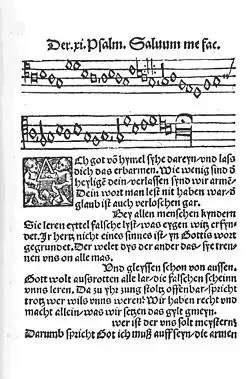 Der .xi. Psalm. Saluum me fac.
ACh got võ hymel syhe dareyn vnd lass
dich das erbarmen. Wie wenig sind d
heylige dein verlassen synd wir armē
Dein wort man lest nit haben war d
glaub ist auch verloschen gar.
Bey allen menschen kyndern
Sie leren eyttel falsche lyst was eygen witz erfyn
det. Jr hertz nicht eines sinnes ist yn Gottis wort
gegrundet. Der welet dys der ander das sye tren
nen vns on alle mas.
Vnd gleyssen schon von aussen.
Gott wolt ausrotten alle lar die falschen scheinn
vnns leren. Da zu yhr zung stoltz offenbar spricht
trotz wer wils vnns weren? Wir haben recht vnd
macht allein was wir setzen das gylt gmeyn.
wer ist der vns solt meystern
Darumb spricht Got ich muß auff seyn die armen